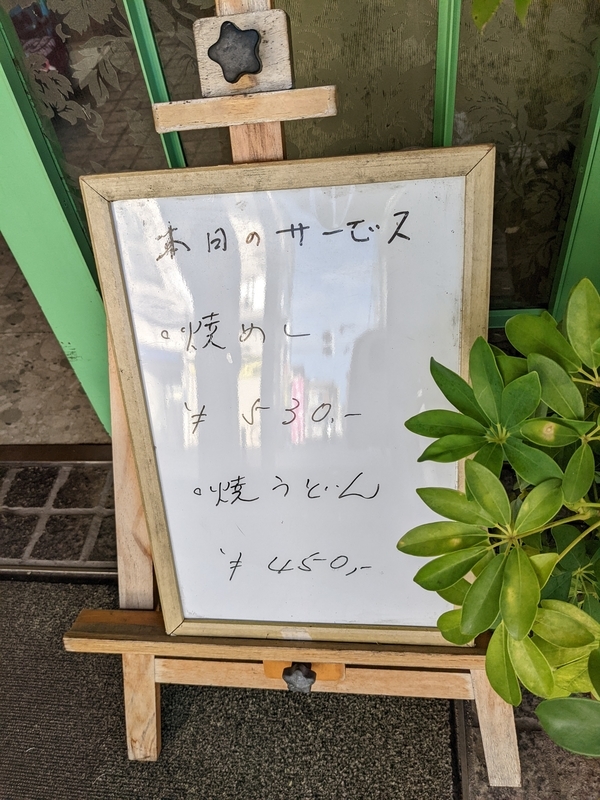 本日のサービス
○焼めし
¥530.-
○焼うどん
¥450.-